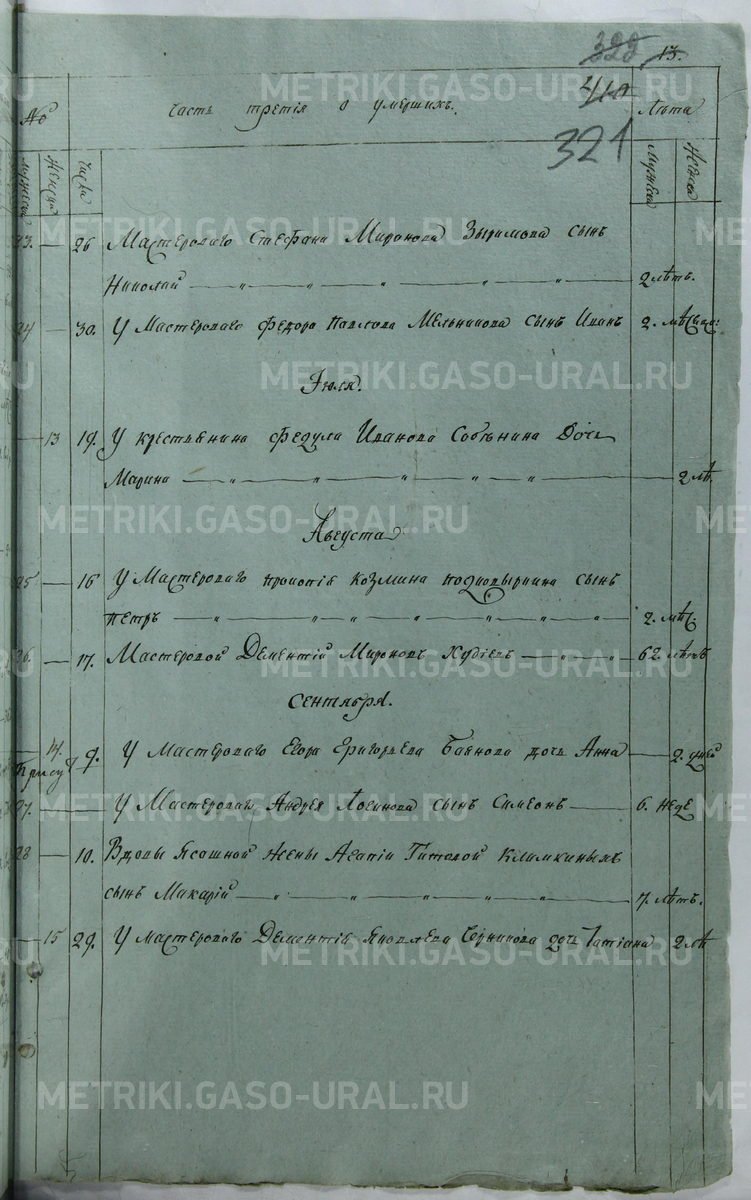 322 13.
410
321
№ Часть третія о умершихъ. Лѣта
Мужеска Женска Числа Мужеска Женска
23. — 26 Мастероваго Стефана Миронова Зырянова сынъ
Николай — „ — „ — „ — „ — „ — 2 лѣтъ.
24 — 30. У Мастероваго Федора Павлова Мельникова сынъ Иванъ 2.
Іюля.
— 13 19. У крестьянина Федула Иванова Собѣнина Дочь
Марина — „ — „ — „ — „ — „ — 2 лѣ.
Августа
25 — 16 У Мастероваго Прокопія Козмина сынъ
Петръ — „ — „ — „ — „ — „ — „ — 2. мѣс.
26. — 17. Мастеровой Дементій Мироновъ — „ — „ 62. лѣтъ
Сентября.
— 14. 9. У Мастероваго Егора Григорьева Баянова дочь Анна — 2.
27. — У Мастероваго Андрея Логинова сынъ Симеонъ — 6. неде
28 — 10. Вдовы Ясошной жены Агапіи Титовой Климкиныхъ
сынъ Макарій — „ — „ — „ — „ — 7. лѣтъ.
— 15 29. У мастероваго Дементія Яковлева дочь Татіана 2 лѣ
METRIKI.GASO-URAL.RU